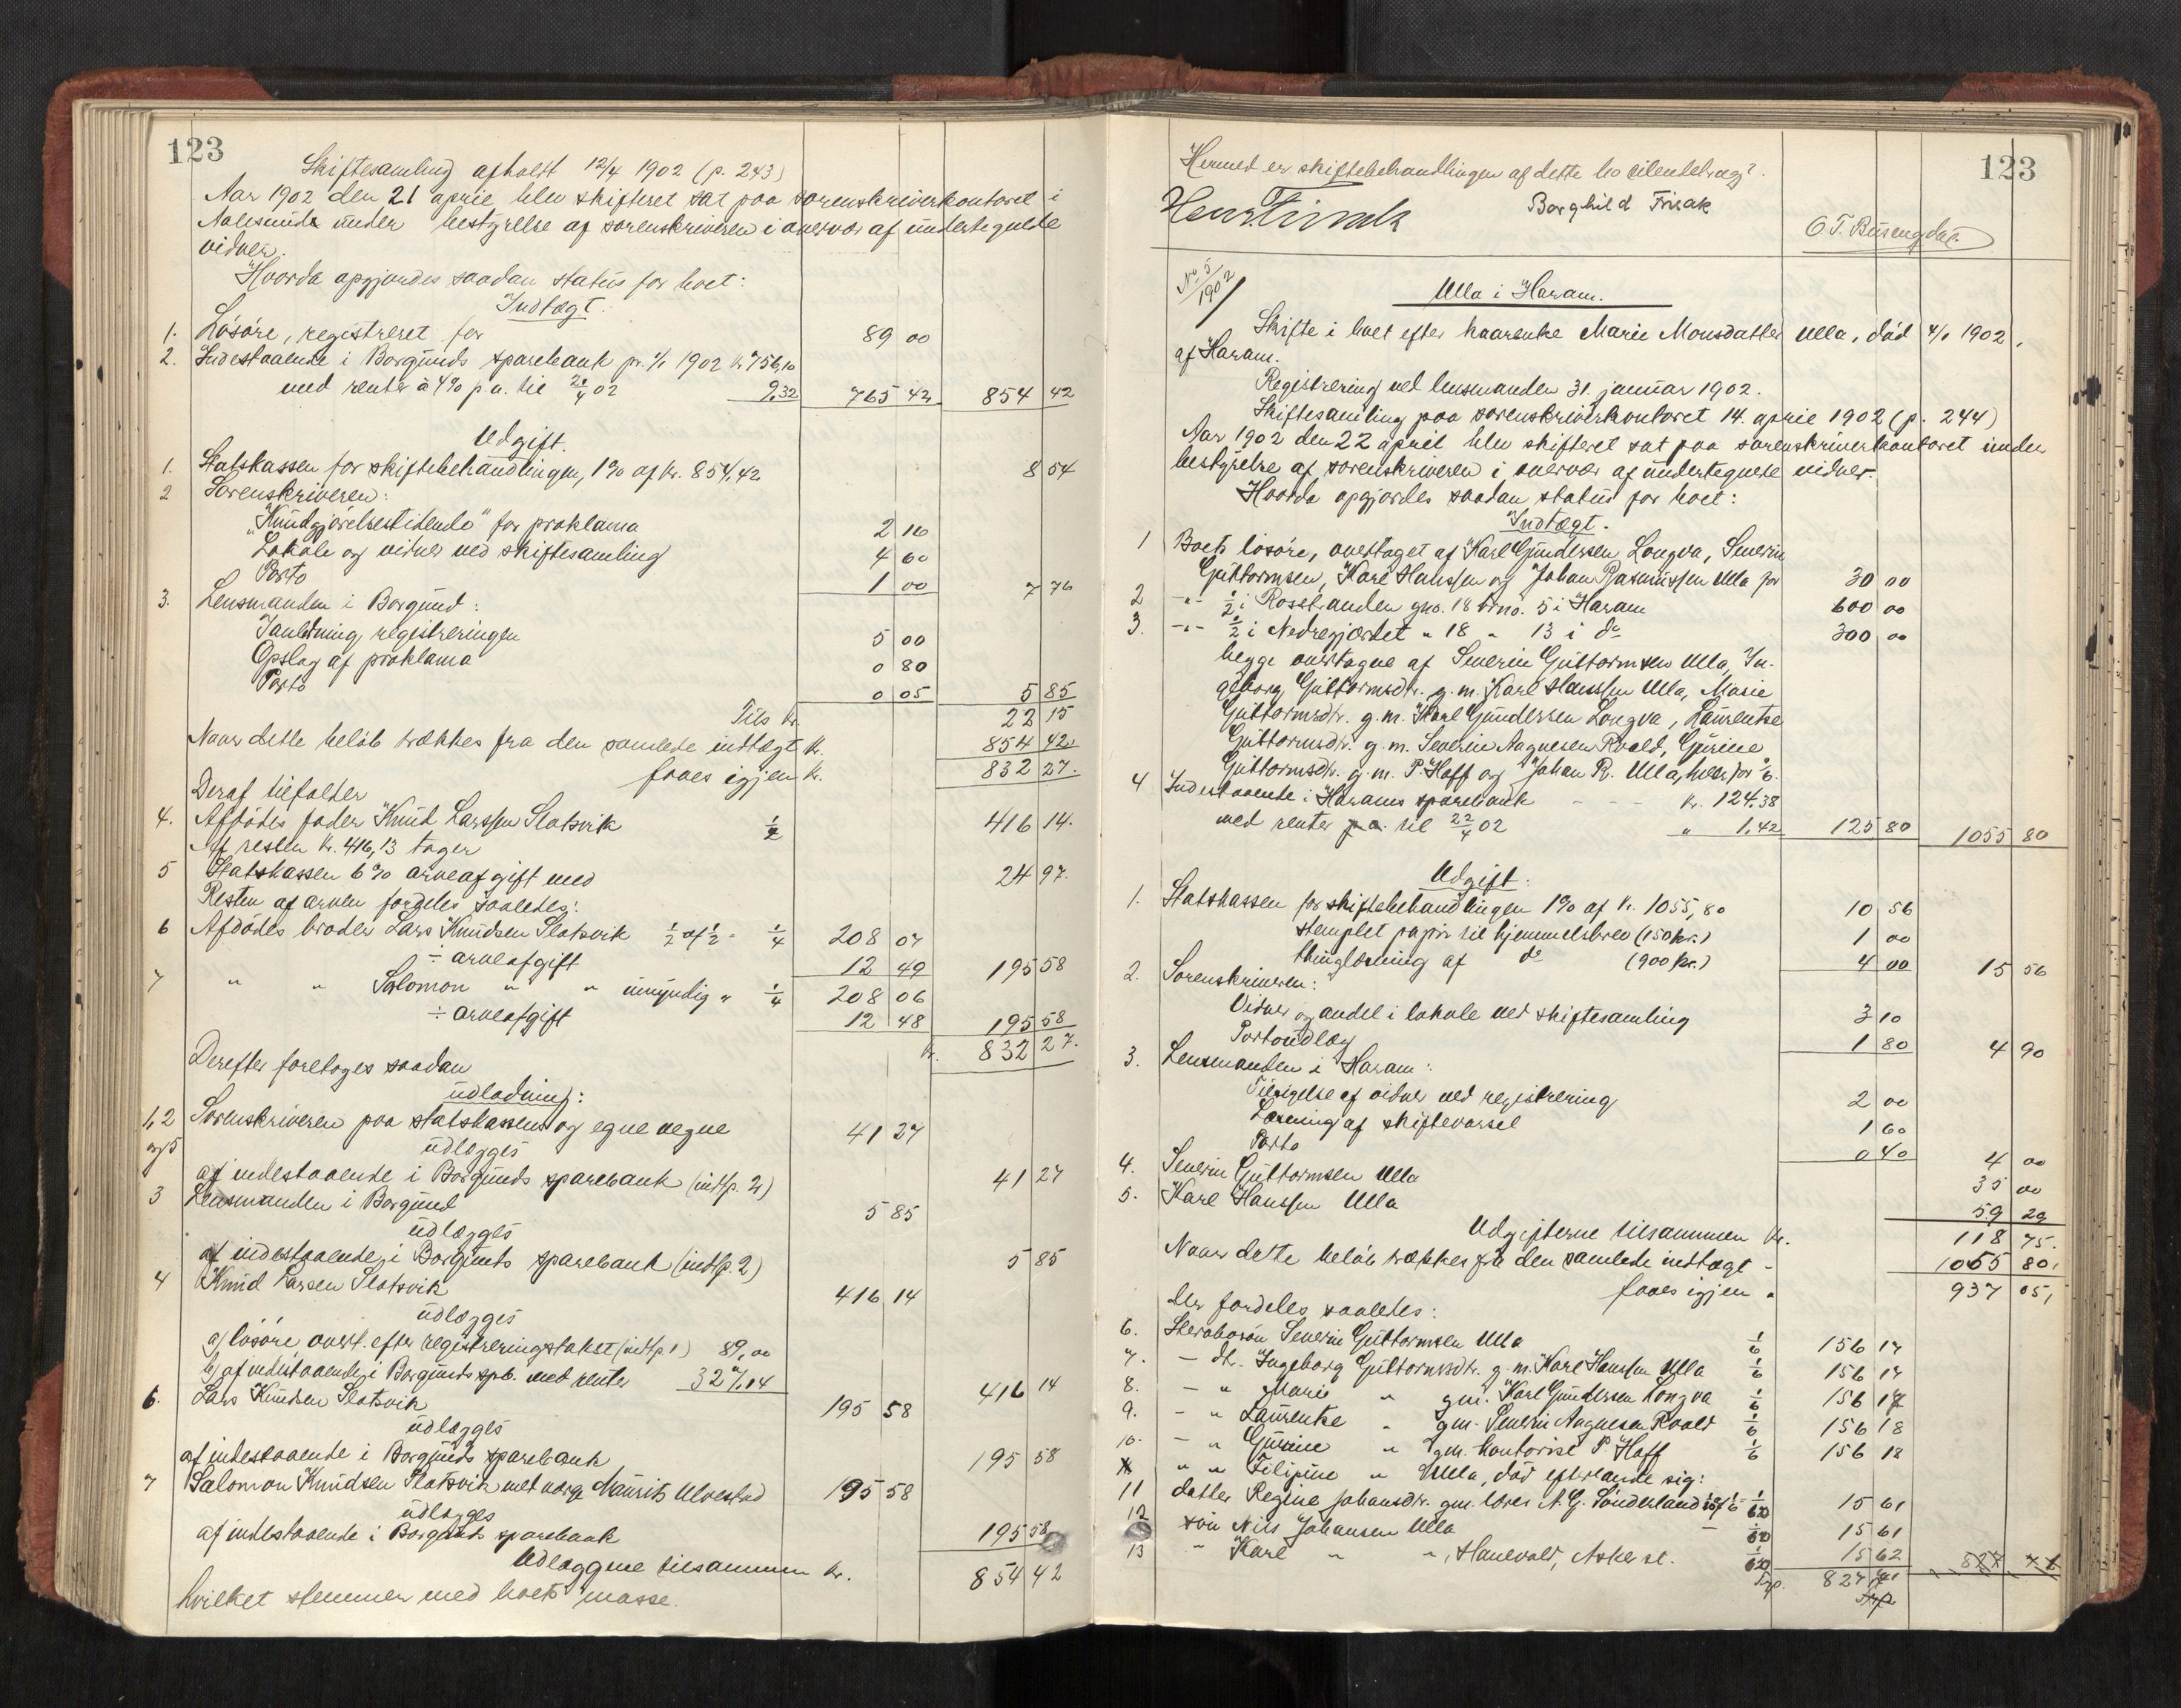 123
Skiftesamling afholdt 12/4 1902 (p. 243)
Aar 1902 den 21 april blev skifteret sat paa sorenskriverkontoret i
Aalesund under bestyrelse af sorenskriveren i overvær af undertegnede
vidner.
Hvorda opgjordes saadan status for boet:
Indtægt.
1. Løsøre, registreret for 89 00
2. Indestaaende i Borgunds sparebank pr. 1/1 1902 kr 756,10
med renter à 4% p.a. til 21/4 02 9,32 765 42 854 42
Udgift.
1. Statskassen for skiftebehandlingen, 1% af kr. 854,42 8 54
2 Sorenskriveren:
"Kundgjørelsestidende" for proklama 2 16
Lokale og vidner ved skiftesamling 4 60
Porto 1 00 7 76
3. Lensmanden i Borgund:
registreringen 5 00
Opslag af proklama 0 80
Porto 0 05 5 85
Tils kr. 22 15
Naar dette beløb trækkes fra den samlede indtægt kr. 854 42
faaes igjen kr. 832 27.
Deraf tilfalder
4. Afdødes fader Knud Larssen Slatsvik 1/2 416 14.
Af resten kr. 416,13 tager
5 Statskassen 6% arveafgift med 24 97.
Resten af arven fordeles saaledes:
6 Afdødes broder Lars Knudsen Slatsvik 1/2 af 1/2 = 1/4 208 07
÷ arveafgift 12 49 195 58
7 " " Salomon " " umyndig " 1/4 208 06
÷ arveafgift 12 48 195 58
kr. 832 27.
Derefter foretoges saadan
udlodning:
1,2 Sorenskriveren paa statskassens og egne vegne 41 27
og 5 udlægges
af indestaaende i Borgunds sparebank (indtp. 2) 41 27
3 Lensmanden i Borgund 5 85
udlægges
af indestaaende i Borgunds sparebank (indtp. 2) 5 85
4 Knud Larsen Slatsvik 416 14
udlægges
a) løsøre, overt. efter registreringstakst (indtp 1) 89,00
b) af indestaaende i Borgunds spb. med renter 327,14 416 14
6. Lars Knudsen Slatsvik 195 58
udlægges
af indestaaende i Borgunds sparebank 195 58
7 Salomon Knudsen Slatsvik ved værge Maurits Ulvestad 195 58
udlægges
af indestaaende i Borgunds sparebank 195 58
Udlæggene tilsammen kr. 854 42
hvilket stemmer med boets masse.
123
Hermed er skiftebehandlingen af dette bo tilendebragt.
Borghild Frisak
O. T. Busengdal
No 5/1902
Ulla i Haram.
Skifte i boet efter kaarenke Marie Monsdatter Ulla, død 4/1 1902,
af Haram.
Registrering ved lensmanden 31. januar 1902.
Skiftesamling paa sorenskriverkontoret 14. april 1902 (p. 244)
Aar 1902 den 22 april blev skifteret sat paa sorenskriverkontoret under
bestyrelse af sorenskriveren i overvær af undertegnede vidner.
Hvorda opgjordes saadan status for boet:
Indtægt.
1 Boets løsøre, overtaget af Karl Gundersen Longva, Severin
Guttormsen, Karl Hanssen og Johan Rasmussen Ulla for 30 00
2 -"- 1/2 i Rosstranden gno. 18 brno. 5 i Haram 600 00
3. -"- 1/2 i Nedregjærdet " 18 " 13 i do 300 00
begge overtagne af Severin Guttormsen Ulla, In-
geborg Guttormsdtr. g.m. Karl Hanssen Ulla, Marie
Guttormsdtr. g.m. Karl Gundersen Longva, Laurentse
Guttormsdtr. g.m. Severin Aagnesen Roald, Gurine
Guttormsdtr. g.m. P. Hoff og Johan R. Ulla, hver for 1/6.
4 Indestaaende i Harams sparebank - - - kr. 124,38
med renter p.a. til 22/4 02 " 1,42 125 80 1055 80
Udgift:
1. Statskassen for skiftebehandlingen 1% af kr. 1055,80 10 56
stemplet papir til hjemmelsbrev (150 kr.) 1 00
thinglæsning af do (900 kr.) 4 00 15 56
2. Sorenskriveren:
Vidner og andel i lokale ved skiftesamling 3 10
Portoudlæg 1 80 4 90
3. Lensmanden i Haram:
Tilsigelse af vidner ved registrering 2 00
Læsning af skiftevarsel 1 60
Porto 0 40 4 00
4. Severin Guttormsen Ulla 35 00
5. Karl Hanssen Ulla 59 29
Udgifterne tilsammen kr. 118 75.
Naar dette beløb trækkes fra den samlede indtægt - 1055 80,
faaes igjen " 937 05,
der fordeles saaledes:
6. Stervbosøn Severin Guttormsen Ulla 1/6 156 17
7. - dtr. Ingeborg Guttormsdtr. g.m. Karl Hanssen Ulla 1/6 156 17
8. - " Marie " gm. Karl Gundersen Longva 1/6 156 17
9. - " Laurentse " gm. Severin Aagnesen Roald 1/6 156 18
10. - " Gurine " gm. kontorist P. Hoff 1/6 156 18
" " Filipine " Ulla, død efterlatende sig:
11 datter Regine Johansdtr. gm. lærer A. G. Sønderland 1/10 af 1/6 1/60 15 61
12 søn Nils Johansen Ulla - 1/60 15 61
13 " Karl " ", Hanevold, Asker st. 1/60 15 62
Trp. 827 71